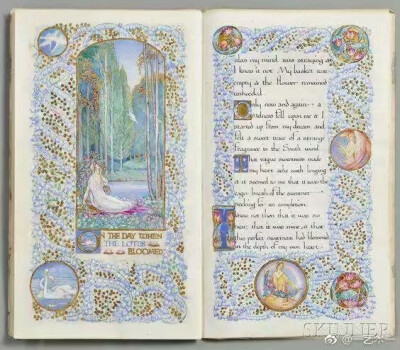 ON THE DAY WHEN
THE LOTUS
BLOOMED
alas my mind was straying &
I knew it not. My basket was
empty & the flower remained
unheeded.
Only now and again — a
sadness fell upon me & I
started up from my dream and
felt a sweet trace of a strange
fragrance in the South wind.
That vague sweetness made
my heart ache with longing
& it seemed to me that it was the
eager breath of the summer
seeking for its completion.
I knew not then that it was so
near, that it was mine, & that
this perfect sweetness had blossomed
in the depth of my own heart.
SKINNER